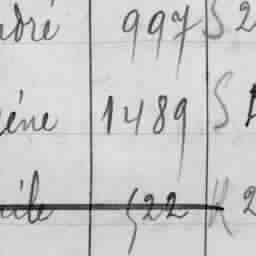 ndré 997 S 2
ène 1489 S
mile 522 K 2